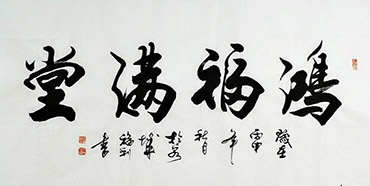 鸿福满堂
岁在
丙申
年
秋月
於京
城
福利
书